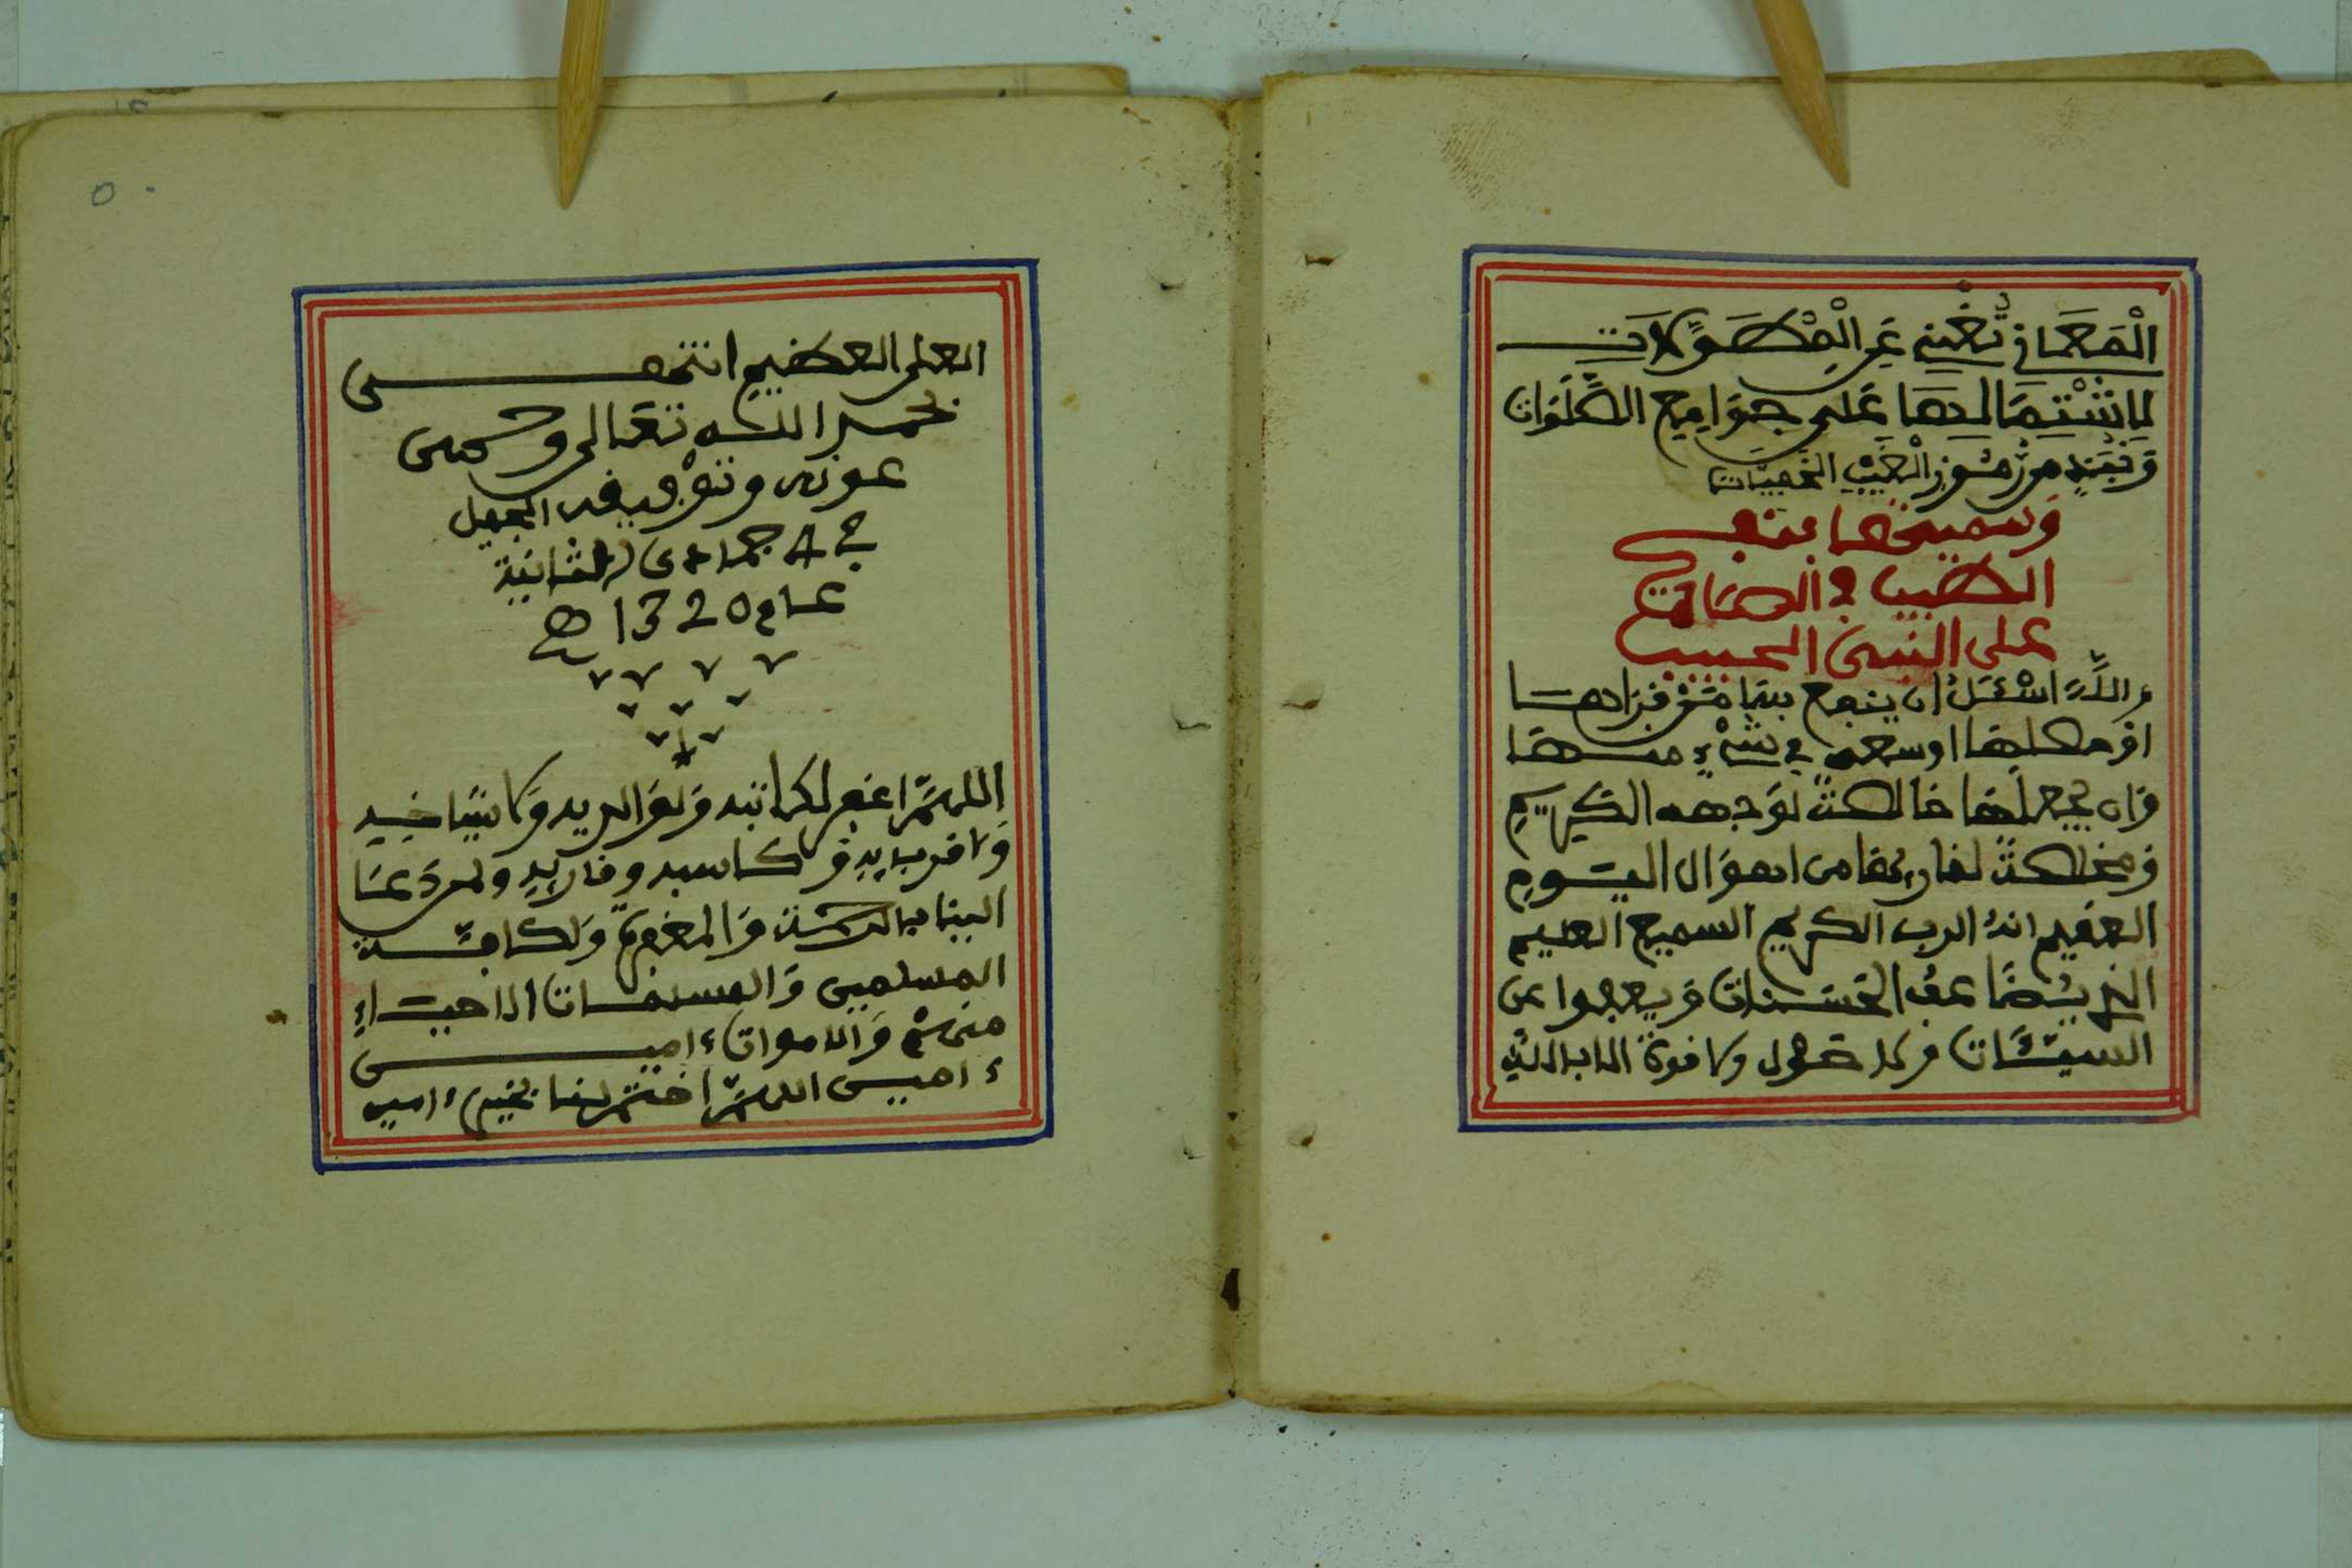 الْمَعَانِي تُغْنِي عَنِ الْمُطَوَّلَاتِ
لِاشْتِمَالِهَا عَلَى جَوَامِعِ الصَّلَوَات
وَنُبَذٍ من رُمُوزِ الْغَيْبِ الخَفِيَّات
وَسميتها بنفح
الطيب في الصلاة
على النبي الحبيب
واللهَ اسْئَلُ ان ينفع بها مَنْ قرَاهـا
اوْ حصلها او سعى في شَيْءٍ منها
وَان يجعلَها خالصةً لوَجهه الكريم
وَمخلصةً لقارئها من اهوَال اليوم
العقيم انهُ الرب الكريم السميع العليم
الذي يُضاعفُ الحَسَنات وَيعفوا عن
السيئَات ولا حول ولا قوة الا بالله
العلي العظيم انتهى
بحمد اللـه تعَالى وحسن
عونه وتوْفيقه الجميل
في 8 جمادى الثانية
عـام 1320 هـ
اللهمَّ اغفر لكاتبه وَلوَالديه وَلاشياخـه
وَلاقربايه وَكاسبه وقاريه ولمن دَعَا
الينا بالرحمَة وَالمغفرة وَلكافّـة
المسلمين وَالمسلمات الاحيـاءِ
منهمْ وَالاموات ءاميـن
ءاميـن اللهمَّ اختم لنا بخير ءامين
٥٠